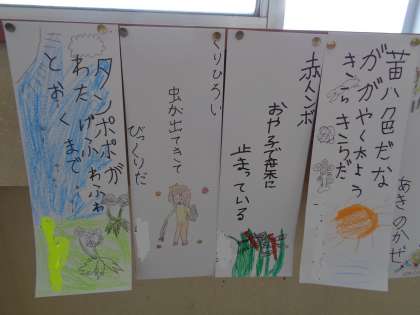 あきのかぜ
黄色だな
ががやく太よう
きらきらだ
赤トンボ
おや子で葉に
止まっている
くりひろい
虫が出てきて
びっくりだ
タンポポが
わたげふわふわ
とおくまで